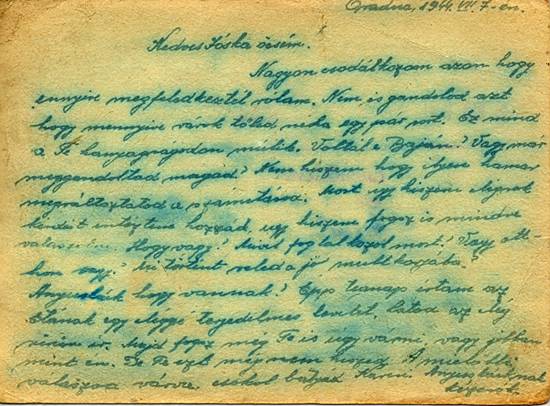 Gradna, 1944. VII. 7-én.
Kedves Jóska öcsém.
Nagyon csodálkozom azon hogy
ennyire megfeledkeztél rólam. Nem is gondolod azt
hogy mennyire várok tőled néha egy pár sort. Ez mind
a Te hanyagságodon múlik. Voltál e Baján? Vagy már
meggondoltad magad? Nem hiszem hogy ilyen hamar
megváltoztatod a számításod. Most úgy hiszem elégnek
kérdést intéztem hozzád, úgy hiszem fogsz is mindre
válaszolni. Hogy vagy? Mivel foglalkozol most? Vagy ott-
hon vagy? Mi történt veled a jó
Anyusék hogy vannak? Épp tegnap írtam az
egy eléggé terjedelmes levelet, látod az még
sem ír. Majd fogsz még Te is úgy várni, vagy jobban
mint én. De Te ezt még nem hiszed. A mielőbbi
válaszod várva, csókol bátyád Anyuséknak
kézcsók.